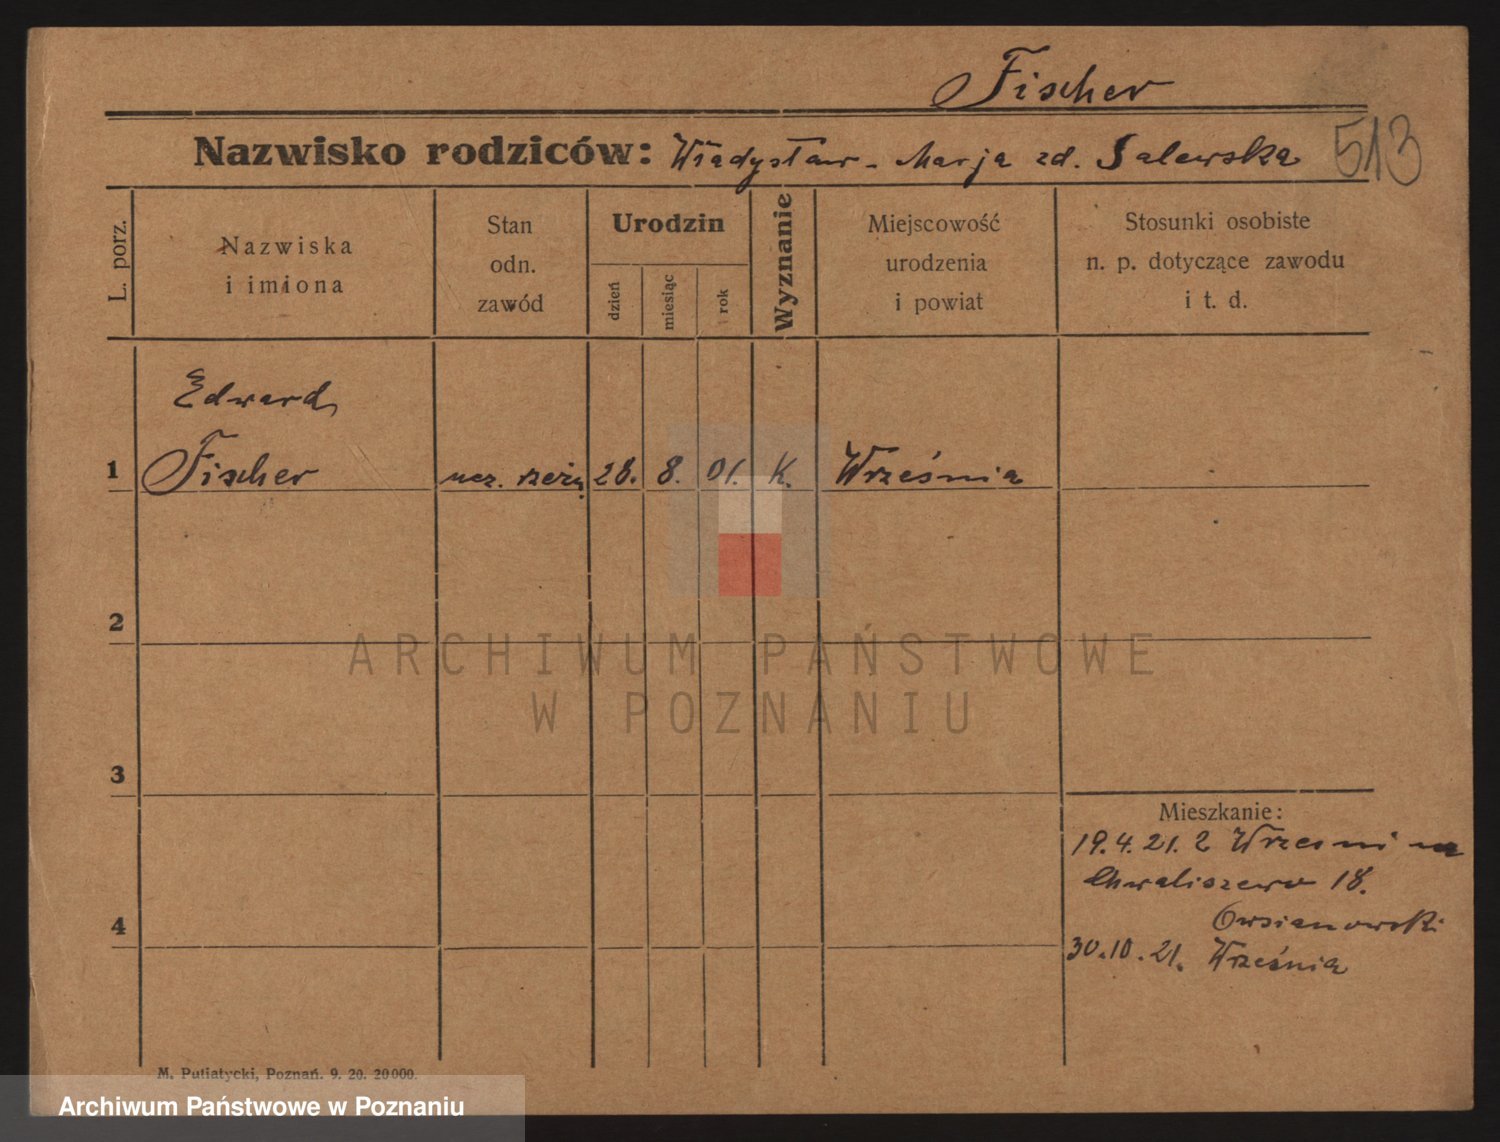 Fischer
Nazwisko rodziców: Władysław - Marja zd. Salewska
513
L. porz.
Nazwiska
i imiona
Stan
odn.
zawód
Urodzin
dzień
miesiąc
rok
Wyznanie
Miejscowość
urodzenia
i powiat
Stosunki osobiste
n. p. dotyczące zawodu
i t. d.
Edward
1 Fischer ucz. rzeźn. 28. 8. 01. K. Września
2
ARCHIWUM PAŃSTWOWE
W POZNANIU
3
Mieszkanie:
19.4.21. z Wrześni na
Chwaliszewo 18.
4
Owsianowski
30.10.21. Września
M. Putiatycki, Poznań. 9. 20. 20000.
Archiwum Państwowe w Poznaniu